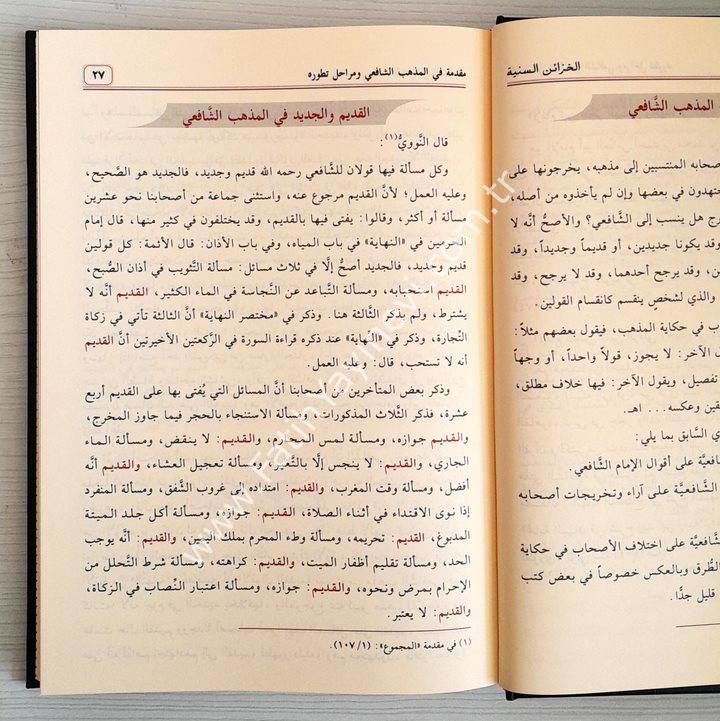 الخزائن السنية
المذهب الشَّافعي
صحابه المنتسبين إلى مذهبه، يخرجونها على
جتهدون في بعضها وإن لم يأخذوه من أصله،
رج هل ينسب إلى الشَّافعي؟ والأصحُّ أنَّه لا
وقد يكونا جديدين، أو قديماً وجديداً، وقد
ين، وقد يرجح أحدهما، وقد لا يرجح، وقد
والذي لشخصٍ ينقسم كانقسام القولين.
ب في حكاية المذهب، فيقول بعضهم مثلاً:
ل الآخر: لا يجوز، قولاً واحداً، أو وجهاً
تفصيل، ويقول الآخر: فيها خلاف مطلق،
قين وعكسه... اهـ.
ي السَّابق بما يلي:
فعيَّة على أقوال الإمام الشَّافعي.
الشَّافعيَّة على آراء وتخريجات أصحابه
شافعيَّة على اختلاف الأصحاب في حكاية
الطُّرق وبالعكس خصوصاً في بعض كتب
قليل جدًّا.
مقدمة في المذهب الشافعي ومراحل تطوره
٢٧
القديم والجديد في المذهب الشَّافعي
قال النَّوويُّ(١):
وكل مسألة فيها قولان للشَّافعي رحمه الله قديم وجديد، فالجديد هو الصَّحيح،
وعليه العمل؛ لأنَّ القديم مرجوع عنه، واستثنى جماعة من أصحابنا نحو عشرين
مسألة أو أكثر، وقالوا: يفتى فيها بالقديم، وقد يختلفون في كثير منها، قال إمام
الحرمين في «النهاية» في باب المياه، وفي باب الأذان: قال الأئمة: كل قولين
قديم وجديد، فالجديد أصحُّ إلَّا في ثلاث مسائل: مسألة التَّثويب في أذان الصُّبح،
القديم استحبابه، ومسألة التَّباعد عن النَّجاسة في الماء الكثير، القديم أنَّه لا
يشترط، ولم يذكر الثَّالثة هنا. وذكر في «مختصر النهاية» أنَّ الثالثة تأتي في زكاة
التِّجارة، وذكر في «النهاية» عند ذكره قراءة السورة في الرَّكعتين الأخيرتين أنَّ القديم
أنه لا تستحب، قال: وعليه العمل.
وذكر بعض المتأخرين من أصحابنا أنَّ المسائل التي يُفتى بها على القديم أربع
عشرة، فذكر الثَّلاث المذكورات، ومسألة الاستنجاء بالحجر فيما جاوز المخرج،
والقديم جوازه، ومسألة لمس المحارم، والقديم: لا ينقض، ومسألة الماء
الجاري، والقديم: لا ينجس إلَّا بالتَّغير، ومسألة تعجيل العشاء، والقديم أنَّه
أفضل، ومسألة وقت المغرب، والقديم: امتداده إلى غروب الشَّفق، ومسألة المنفرد
إذا نوى الاقتداء في أثناء الصلاة، القديم: جوازه، ومسألة أكل جلد الميتة
المدبوغ، القديم: تحريمه، ومسألة وطء المحرم بملك اليمين، والقديم: أنَّه يوجب
الحد، ومسألة تقليم أظفار الميت، والقديم: كراهته، ومسألة شرط التَّحلل من
الإحرام بمرض ونحوه، والقديم: جوازه، ومسألة اعتبار النِّصاب في الزكاة،
والقديم: لا يعتبر.
(١) في مقدمة «المجموع»: (١٠٧/١).